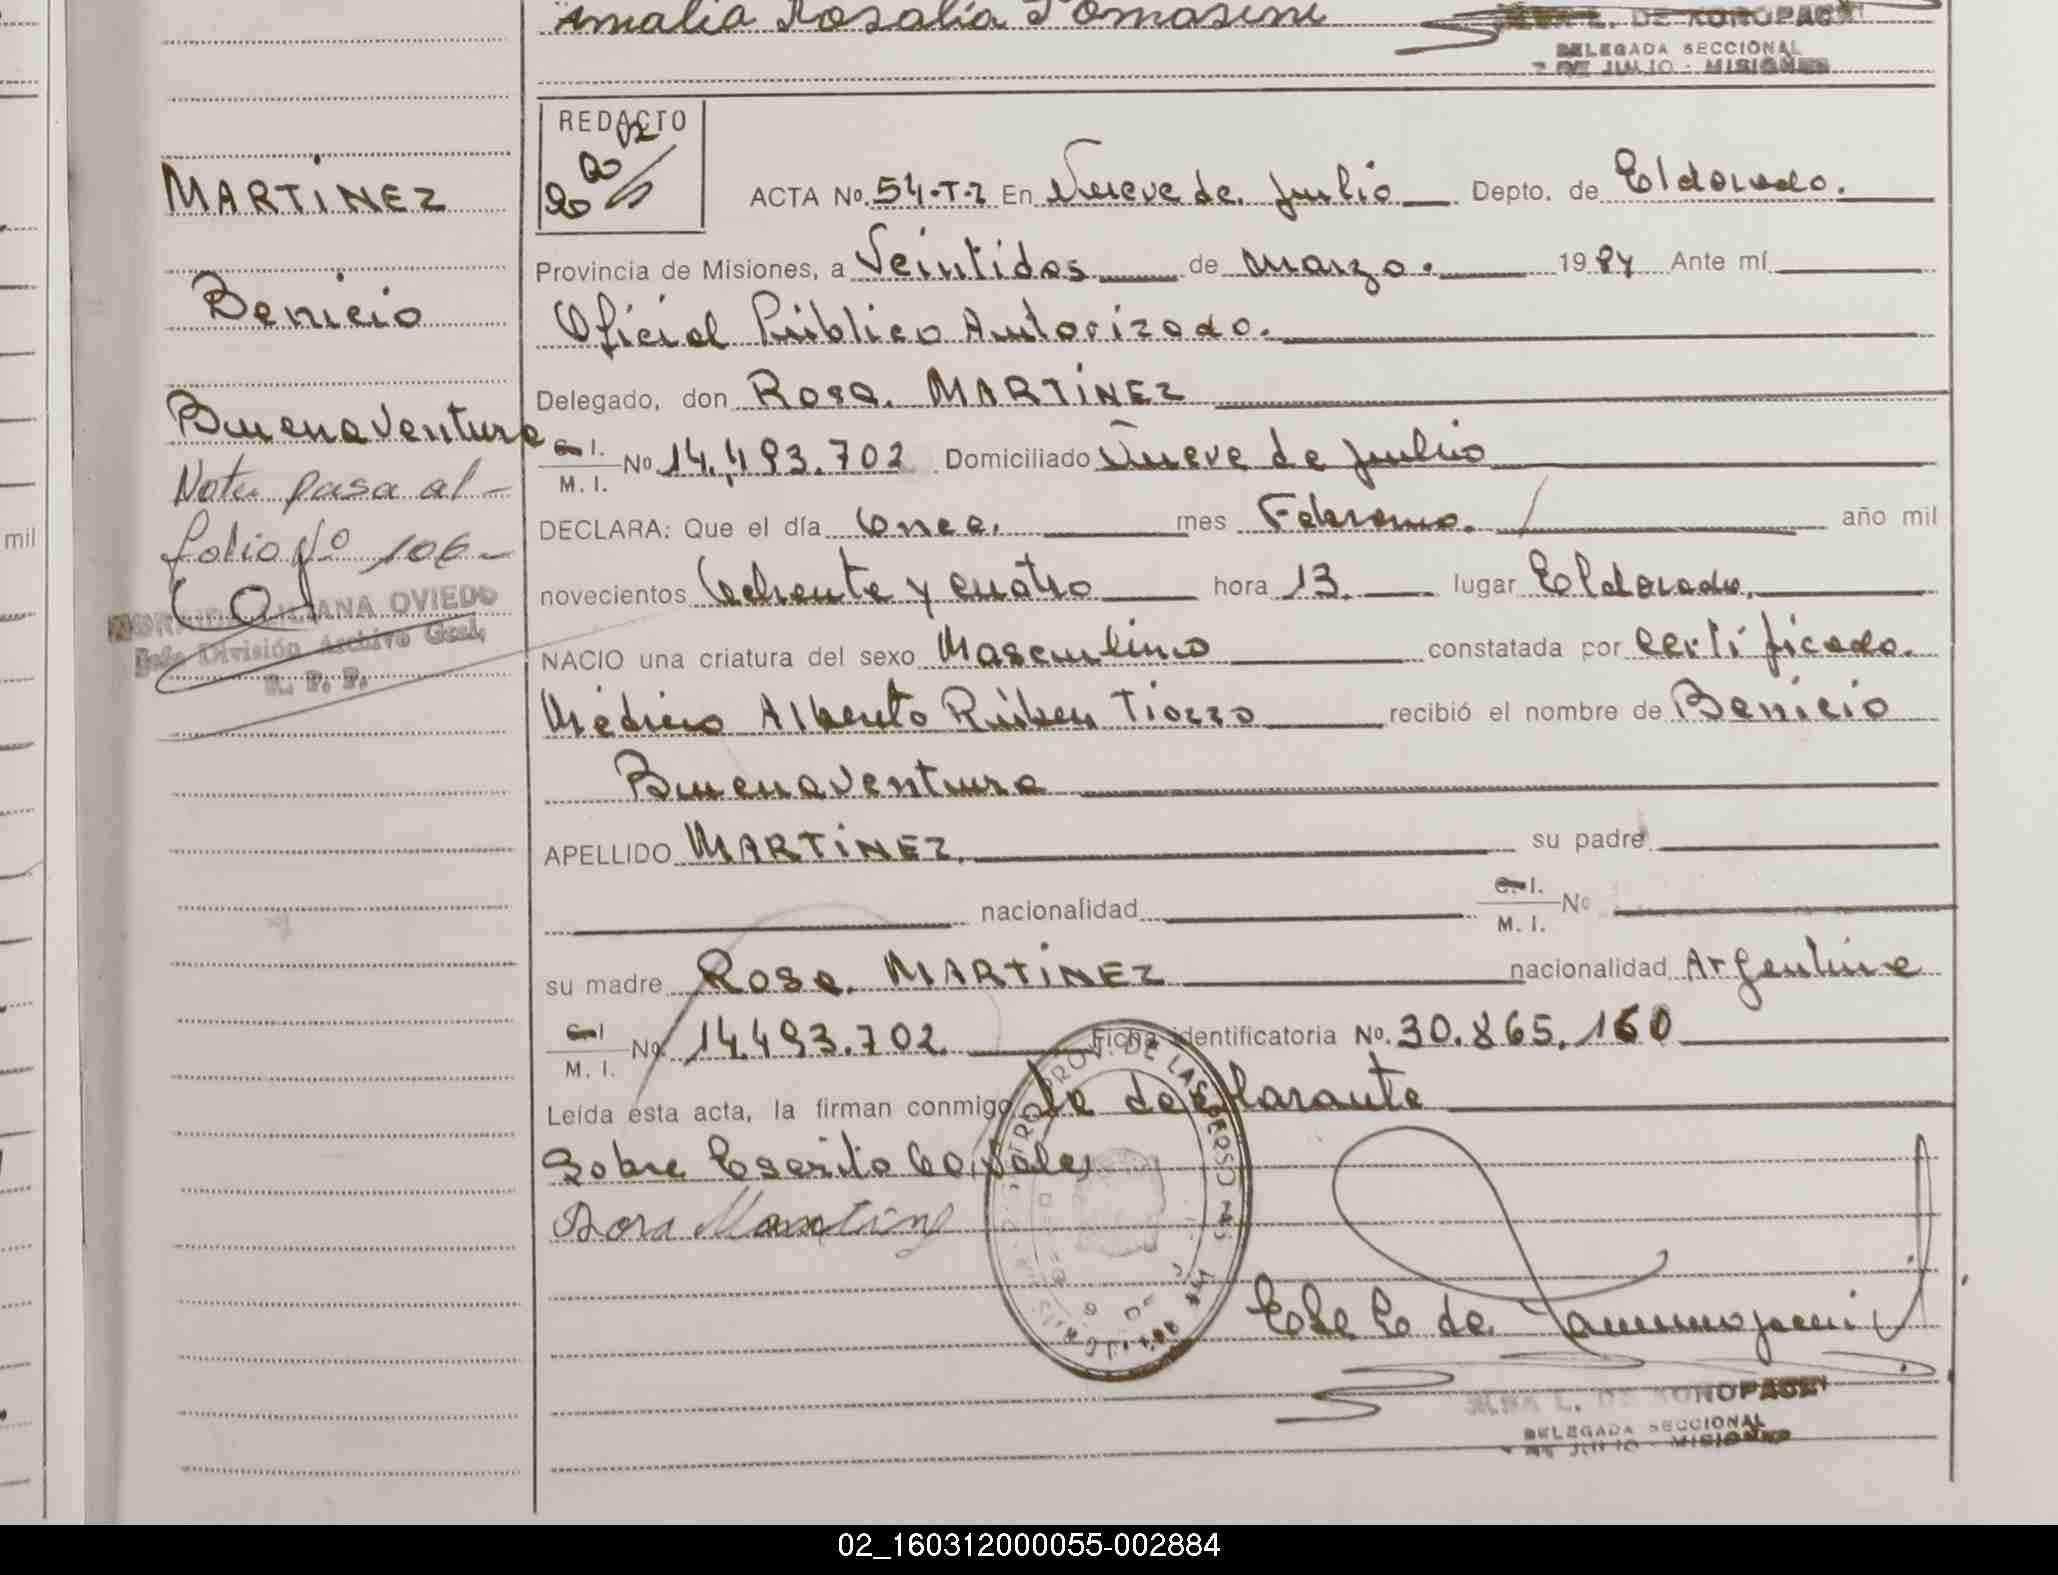 Amalia Rosalia Tomasini
DE KONOPACKI
DELEGADA SECCIONAL
9 DE JULIO - MISIONES
REDACTO
MARTINEZ
Benicio
Buenaventura
Nota pasa al -
folio Nº 106 -
LILIANA OVIEDO
Jefe División Archivo Gral.
R. P. P.
mil
ACTA Nº 54-T-2 En Nueve de Julio Depto. de Eldorado.
Provincia de Misiones, a Veintidos de marzo. 1984 Ante mí
Oficial Público Autorizado.
Delegado, don Rosa MARTINEZ
C. I.
M. I. Nº 14.493.702 Domiciliado Nueve de Julio
DECLARA: Que el día Once. mes Febrero. año mil
novecientos Ochenta y cuatro hora 13. lugar Eldorado,
NACIO una criatura del sexo Masculino constatada por Certificado
Médico Alberto Rúben Tiozzo recibió el nombre de Benicio
Buenaventura
APELLIDO MARTINEZ. su padre
nacionalidad C. I. M. I. Nº
su madre Rosa MARTINEZ nacionalidad Argentina
C. I.
M. I. Nº 14.493.702 Ficha identificatoria Nº. 30.865.160
Leída esta acta, la firman conmigo la declarante
Sobre Escrito 60, Vale,
Rosa Martinez
DE KONOPACKI
DELEGADA SECCIONAL
9 DE JULIO - MISIONES
02_160312000055-002884